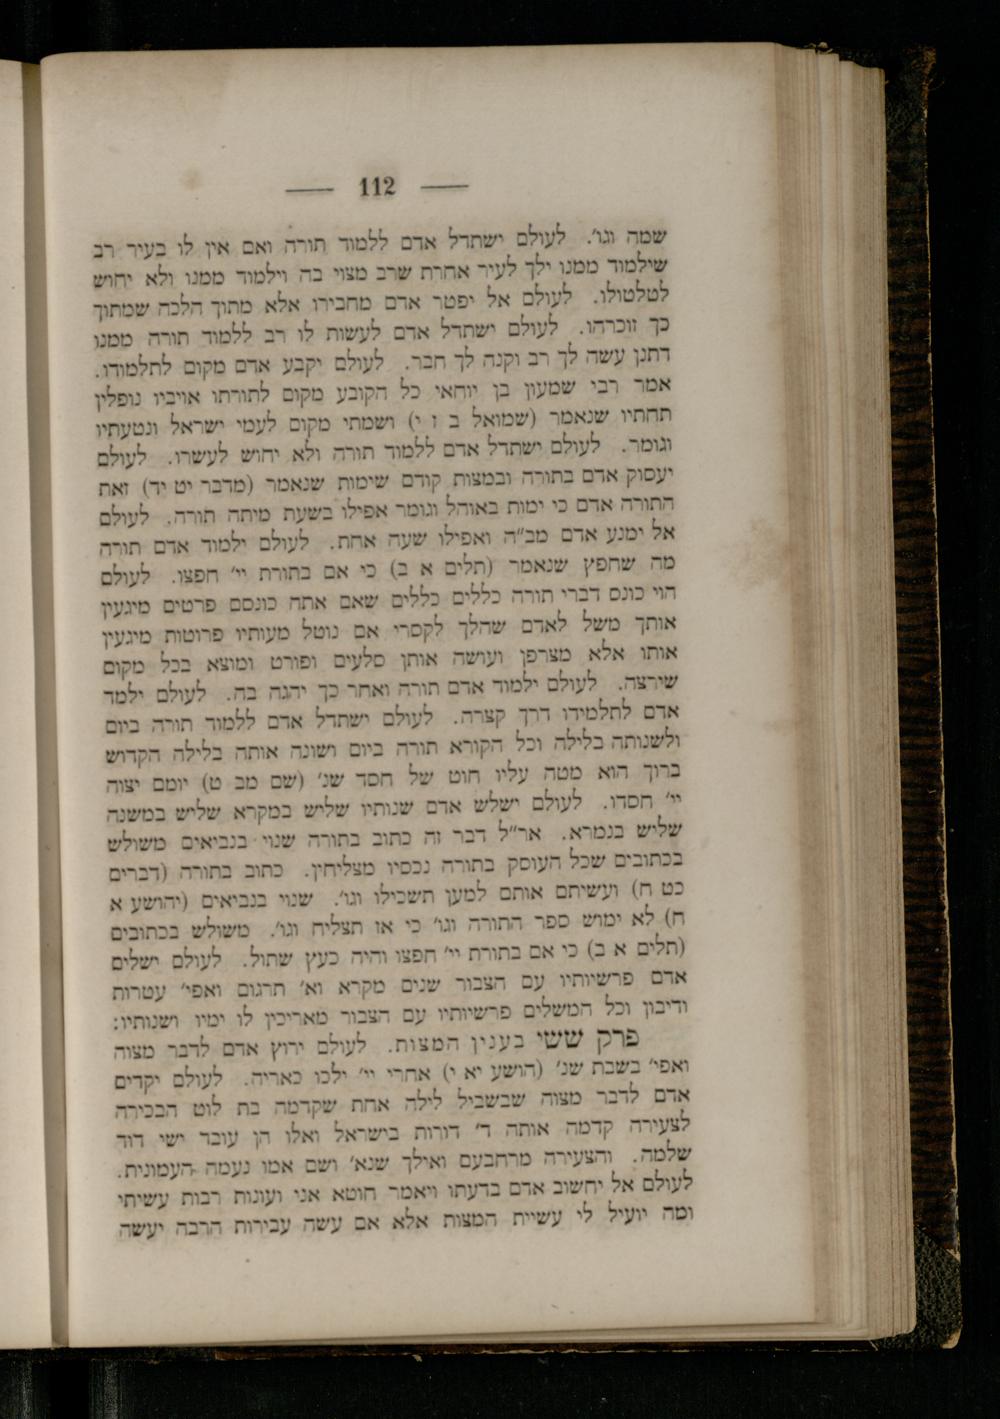 — 112 —
שמה וגו׳. לעולם ישתדל אדם ללמוד תורה ואם אין לו בעיר רב
שילמוד ממנו ילך לעיר אחרת שרב מצוי בה וילמוד ממנו ולא יחוש
לטלטולו. לעולם אל יפטר אדם מחבירו אלא מתוך הלכה שמתוך
כך זוכרהו. לעולם ישתדל אדם לעשות לו רב ללמוד תורה ממנו
דתנן עשה לך רב וקנה לך חבר. לעולם יקבע אדם מקום לתלמודו.
אמר רבי שמעון בן יוחאי כל הקובע מקום לתורתו אויביו נופלין
תחתיו שנאמר (שמואל ב ז י) ושמתי מקום לעמי ישראל ונטעתיו
וגומר. לעולם ישתדל אדם ללמוד תורה ולא יחוש לעשרו. לעולם
יעסוק אדם בתורה ובמצות קודם שימות שנאמר (מדבר יט יד) זאת
התורה אדם כי ימות באוהל וגומר אפילו בשעת מיתה תורה. לעולם
אל ימנע אדם מב״ה ואפילו שעה אחת. לעולם ילמוד אדם תורה
מה שחפץ שנאמר (תלים א ב) כי אם בתורת יי׳ חפצו. לעולם
הוי כונס דברי תורה כללים כללים שאם אתה כונסם פרטים מיגעין
אותך משל לאדם שהלך לקסרי אם נוטל מעותיו פרוטות מיגעין
אותו אלא מצרפן ועושה אותן סלעים ופורט ומוצא בכל מקום
שירצה. לעולם ילמוד אדם תורה ואחר כך יהגה בה. לעולם ילמד
אדם לתלמידו דרך קצרה. לעולם ישתדל אדם ללמוד תורה ביום
ולשנותה בלילה וכל הקורא תורה ביום ושונה אותה בלילה הקדוש
ברוך הוא מטה עליו חוט של חסד שנ׳ (שם מב ט) יומם יצוה
יי׳ חסדו. לעולם ישלש אדם שנותיו שליש במקרא שליש במשנה
שליש בגמרא. אר״ל דבר זה כתוב בתורה שנוי בנביאים משולש
בכתובים שכל העוסק בתורה נכסיו מצליחין. כתוב בתורה (דברים
כט ח) ועשיתם אותם למען תשכילו וגו׳. שנוי בנביאים (יהושע א
ח) לא ימוש ספר התורה וגו׳ כי אז תצליח וגו׳. משולש בכתובים
(תלים א ב) כי אם בתורת יי׳ חפצו והיה כעץ שתול. לעולם ישלים
אדם פרשיותיו עם הצבור שנים מקרא וא׳ תרגום ואפי׳ עטרות
ודיבון וכל המשלים פרשיותיו עם הצבור מאריכין לו ימיו ושנותיו:
פרק ששי בענין המצות. לעולם ירוץ אדם לדבר מצוה
ואפי׳ בשבת שנ׳ (הושע יא י) אחרי יי׳ ילכו כאריה. לעולם יקדים
אדם לדבר מצוה שבשביל לילה אחת שקדמה בת לוט הבכירה
לצעירה קדמה אותה ד׳ דורות בישראל ואלו הן עובד ישי דוד
שלמה. והצעירה מרחבעם ואילך שנא׳ ושם אמו נעמה העמונית.
לעולם אל יחשוב אדם בדעתו ויאמר חוטא אני ועונות רבות עשיתי
ומה יועיל לי עשיית המצות אלא אם עשה עבירות הרבה יעשה